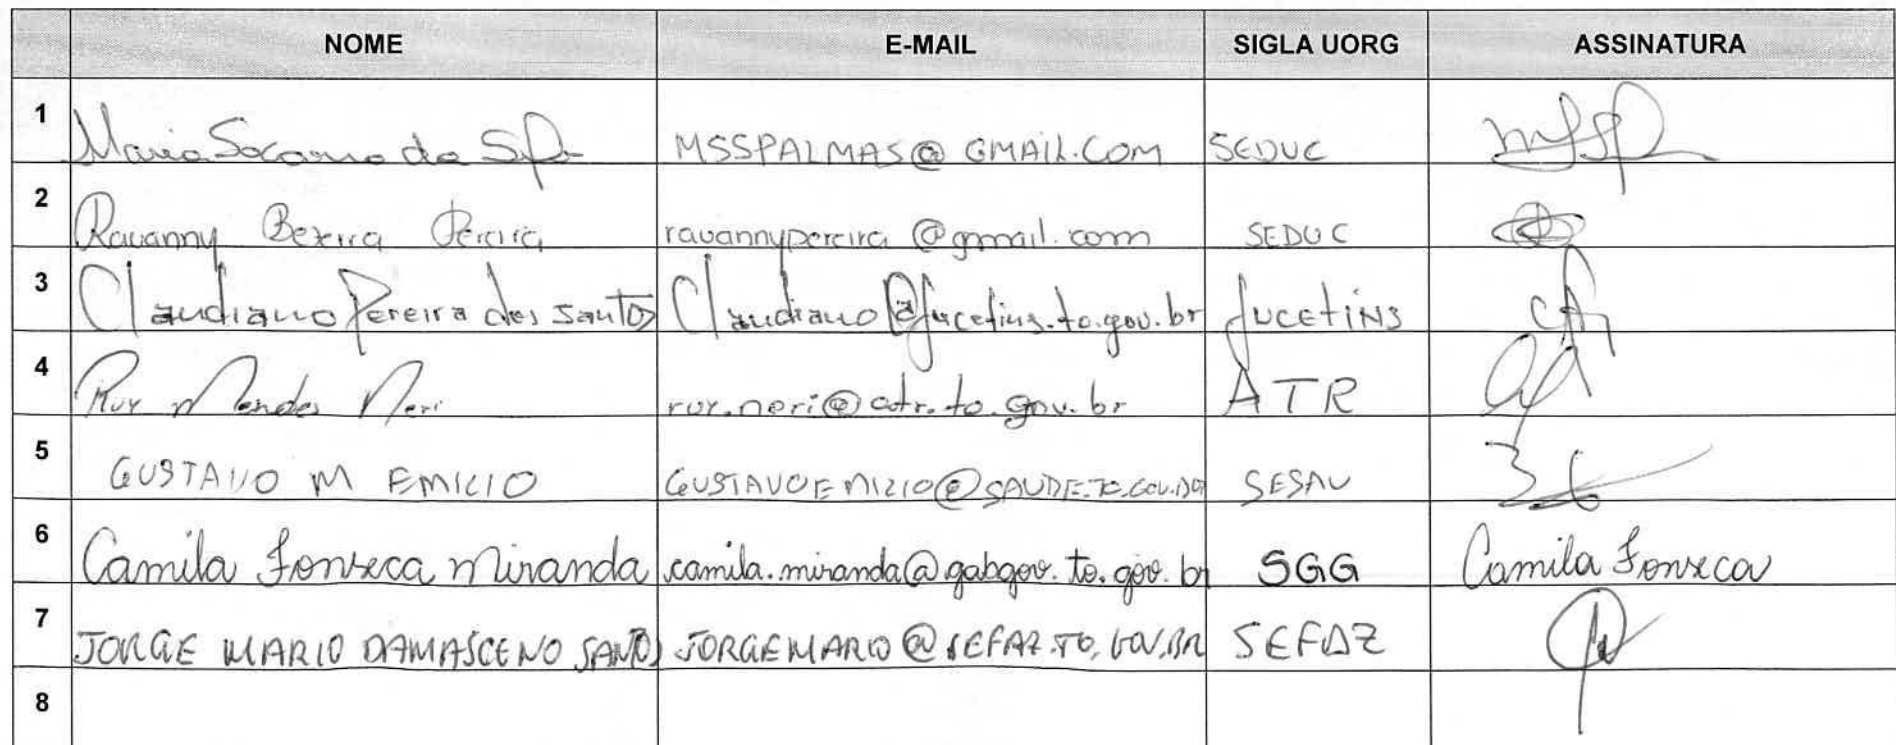 NOME E-MAIL SIGLA UORG ASSINATURA
1 Maria Socorro da MSSPALMAS@GMAIL.COM SEDUC
2 Ravanny Bezerra Pereira ravannypereira@gmail.com SEDUC
3 Claudiano Pereira dos Santos Claudiano@jucetins.to.gov.br Jucetins
4 Ruy Mendes Neri ruy.neri@atr.to.gov.br ATR
5 GUSTAVO M EMILIO SESAU
6 Camila Fonseca Miranda camila.miranda@gabgov.to.gov.br SGG Camila Fonseca
7 JORGE MARIO DAMASCENO SANTOS JORGEMARIO@SEFAZ.TO.GOV.BR SEFAZ
8